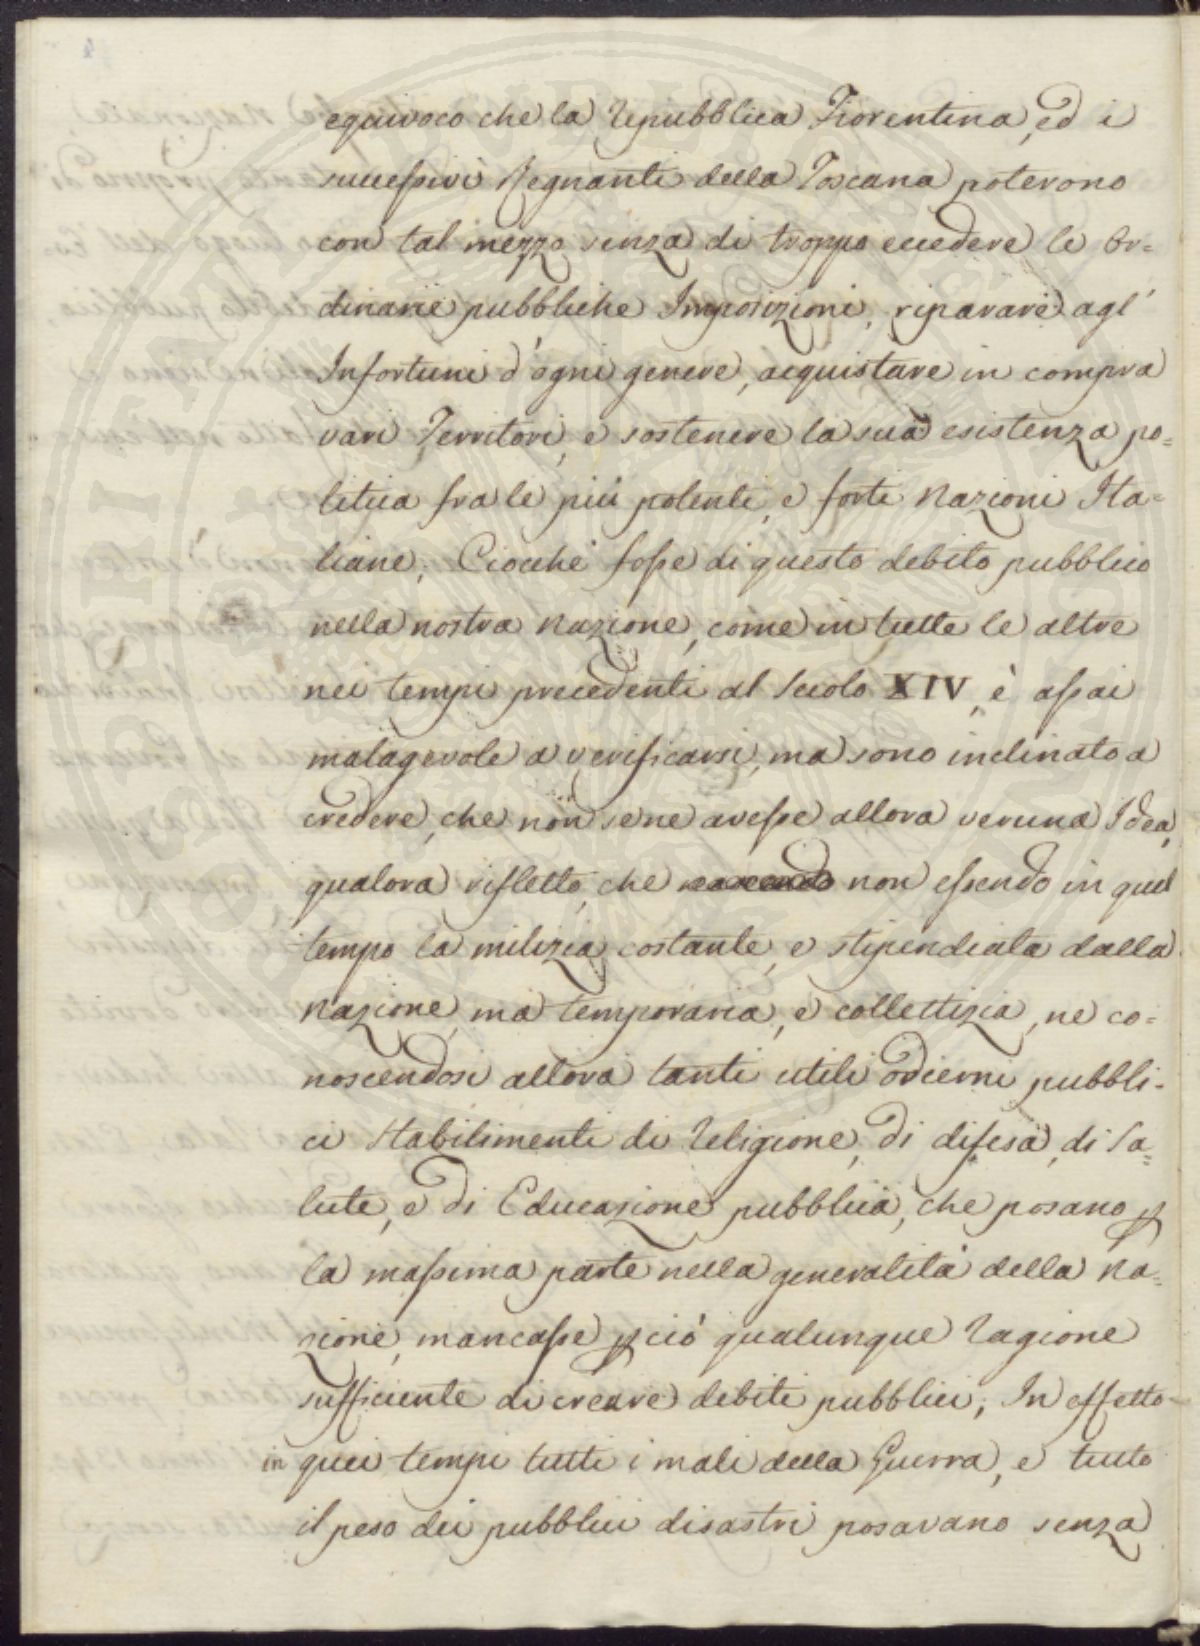 equivoco che la Repubblica Fiorentina, ed i
successivi Regnanti della Toscana poterono
con tal mezzo senza di troppo eccedere le Or=
dinarie pubbliche Imposizioni, riparare agl'
Infortuni d'ogni genere, acquistare in compra
vari Territori, e sostenere la sua esistenza po=
litica fra le più potenti, e forti Nazioni Ita=
liane; Ciocchè fosse di questo debito pubblico
nella nostra Nazione, come in tutte le altre
nei tempi precedenti al Secolo XIV, è assai
malagevole a verificarsi, ma sono inclinato a
credere, che non se ne avesse allora veruna Idea,
qualora rifletto, che non essendo in quel
tempo la milizia costante, e stipendiata dalla
Nazione, ma temporaria, e collettizia, ne co=
noscendosi allora tanti utili odierni pubbli=
ci Stabilimenti di Religione, di difesa, di Sa=
lute, e di Educazione pubblica, che posano ꝑ
la massima parte nella generalità della Na=
zione, mancasse ꝑ ciò qualunque Ragione
sufficiente di creare debiti pubblici; In effetto
in quei tempi tutti i mali della Guerra, e tutto
il peso dei pubblici disastri posavano senza